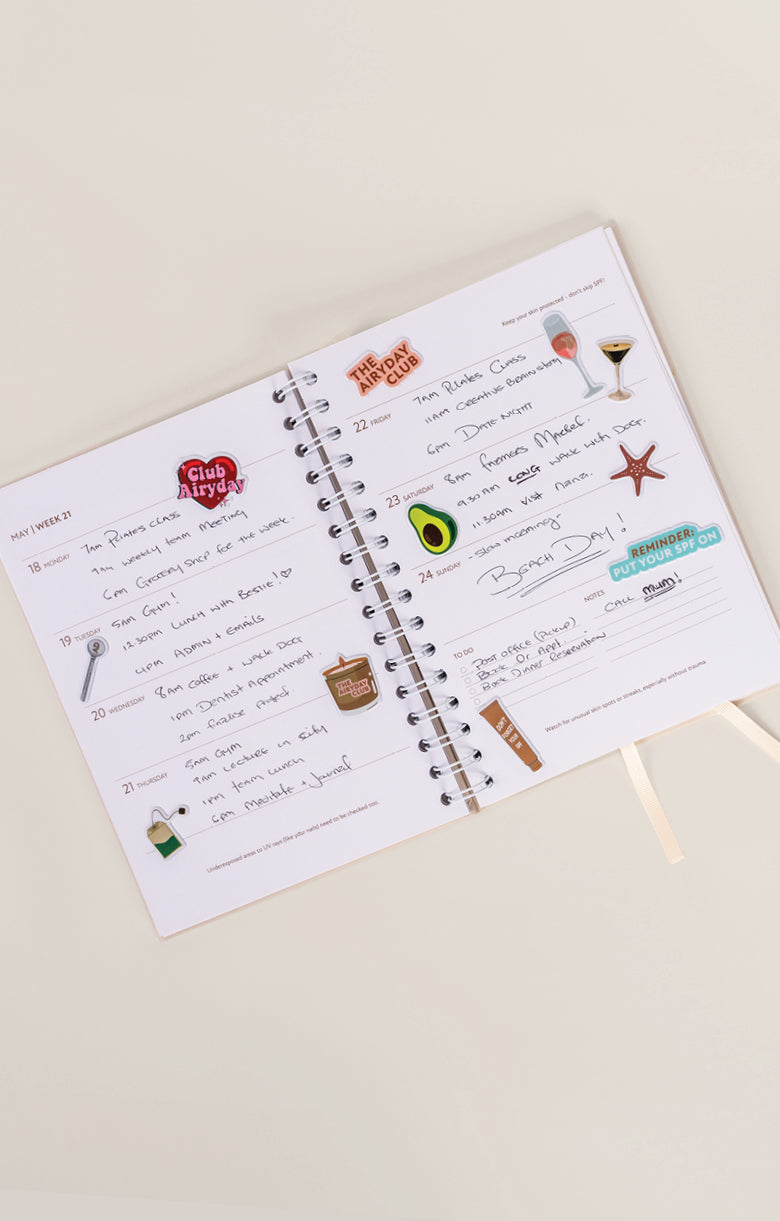 MAY | WEEK 21
Club
Airyday
18 MONDAY
7am Pilates class
9am weekly team meeting
6pm Grocery shop for the week.
19 TUESDAY
5am Gym!
12.30pm Lunch with Bestie! ♡
4pm Admin + emails
20 WEDNESDAY
8am Coffee + walk dog
1pm Dentist Appointment.
2pm finalise project
THE
AIRYDAY
CLUB
21 THURSDAY
5am Gym
9am Lecture in
1pm team lunch
6pm Meditate + Journal
Underexposed areas to UV rays (like your nails) need to be checked too.
Keep your skin protected - don't skip SPF!
THE
AIRYDAY
CLUB
22 FRIDAY
7am Pilates Class
11am Creative Brainstorm
6pm Date Night
23 SATURDAY
8am Farmers Market.
9.30am LONG walk with dog.
11.30am visit Nanz.
24 SUNDAY
-slow morning-
Beach Day!
REMINDER:
PUT YOUR SPF ON
TO DO
Post office (Pickup)
Book Dr Appt.
Book Dinner Reservation
NOTES
Call Mum!
DON'T
FORGET
YOUR
SPF
Watch for unusual skin spots or streaks, especially without trauma.